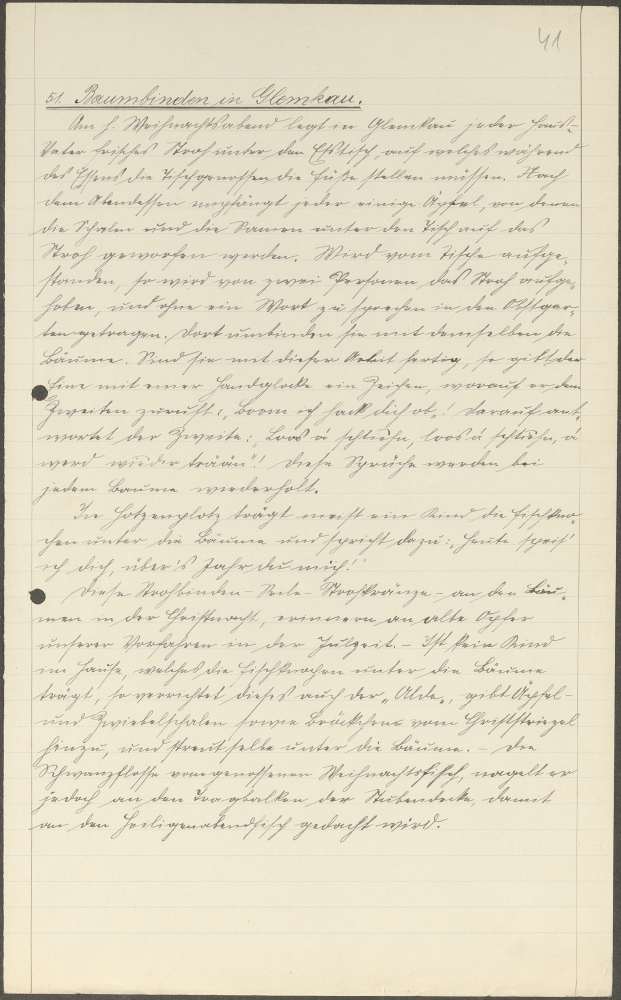 41
51. Baumbinden in Glemkau.
Am h. Weihnachtsabend legt in Glemkau jeder Haus-
vater frisches Stroh unter den Eßtisch, auf welches während
des Essens die Tischgenossen die Füße stellen müssen. Nach
dem Abendessen empfängt jeder einige Äpfel, von denen
die Schalen und die Samen unter den Tisch auf das
Stroh geworfen werden. Wird vom Tische aufge-
standen, so wird von zwei Personen das Stroh aufge-
hoben, und ohne ein Wort zu sprechen in den Obstgar-
ten getragen. Dort umbinden sie mit demselben die
Bäume. Sind sie mit dieser Arbeit fertig, so gibt der
Eine mit einer Handglocke ein Zeichen, worauf er dem
Zweiten zuruft: „Boom ich hack dich ob„! darauf ant-
wortet der Zweite: „Loos a schtiehn, loos a schtiehn, a
werd wieder trään"! Diese Sprüche werden bei
jedem Baume wiederholt.
In Hotzenplotz trägt meist ein Kind die Fischkno-
chen unter die Bäume und spricht dazu: „Heute speis'
ich dich, über's Jahr du mich!"
Diese Strohbinden - Seele - Strohkränze - an den Bäu-
men in der Christnacht, erinnern an alte Opfer
unserer Vorfahren in der Julzeit. - Ist kein Kind
im Hause, welches die Fischknochen unter die Bäume
trägt, so verrichtet dieses auch der „Alde„, gibt Äpfel-
und Zwiebelschalen sowie Bröckchens vom Christstriezel
hinzu, und streut selbe unter die Bäume. - Die
Schwanzflosse vom genossenen Weihnachtsfisch, nagelt er
jedoch an den Tragbalken der Stubendecke, damit
an den Heiligenabendfisch gedacht wird.